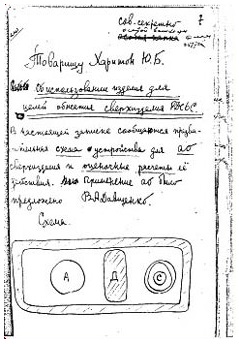 сов. секретно
7
Товарищу Харитон Ю.Б.
Об использовании изделия для
целей обжатия сверхизделия РДС-6с
В настоящей записке сообщаются предва-
рительная схема устройства для аб
сверхизделия и оценочные расчеты её
действия. Применение аб было
предложено В.А.Давиденко.
Схема.
А
Д
С